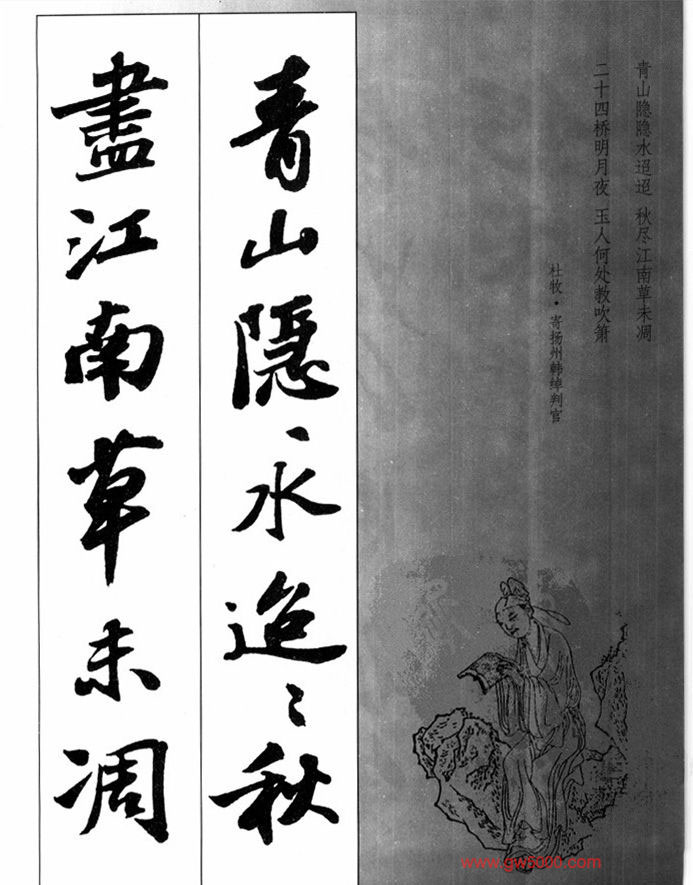 青山隐隐水迢迢 秋尽江南草未凋
二十四桥明月夜 玉人何处教吹箫
杜牧·寄扬州韩绰判官
青山隱〻水迢〻秋
盡江南草未凋
www.gw6000.com